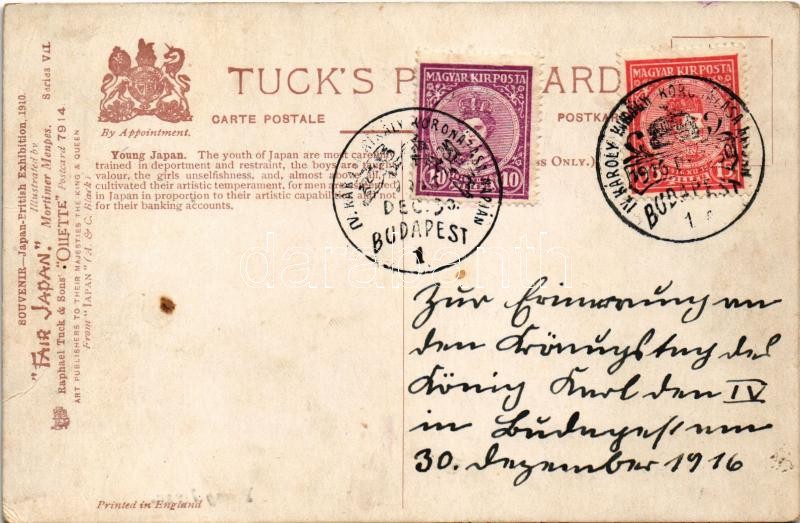 SOUVENIR—Japan-British Exhibition, 1910.
Illustrated by
"FAIR JAPAN." Mortimer Menpes. Series VII.
Raphael Tuck & Sons' "OILETTE" Postcard 7914
ART PUBLISHERS TO THEIR MAJESTIES THE KING & QUEEN
From "JAPAN" (A. & C. Black)
By Appointment.
TUCK'S P CARD
CARTE POSTALE
POSTKAR
ONLY.)
Young Japan. The youth of Japan are most
trained in deportment and restraint, the boys are
valour, the girls unselfishness, and, almost above
cultivated their artistic temperament, for men are
in Japan in proportion to their artistic not
for their banking accounts.
MAGYAR KIR POSTA
10 10
IV. KÁROLY KIRÁLY KORONÁZÁSA NAPJÁN
DEC. 30.
BUDAPEST
1
MAGYAR KIR POSTA
15
IV. KÁROLY KIRÁLY
1916
BUDAPEST
1
Zur Erinnerung an
den Krönugstag des
König Karl den IV
in Budapest am
30. Dezember 1916
darabanth
Printed in England